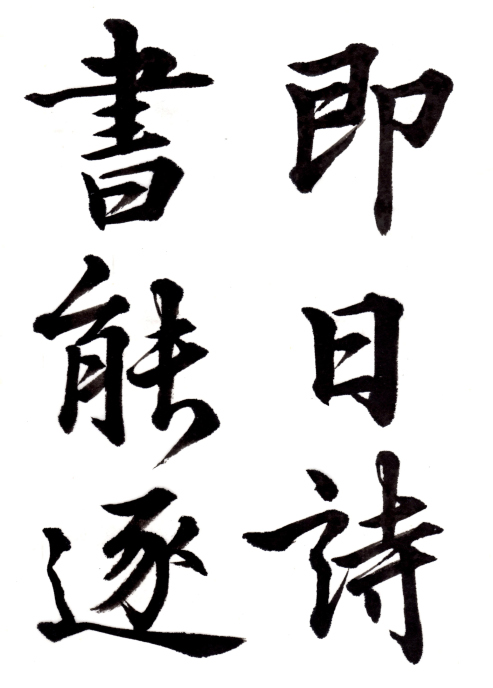 即日詩
書能逐